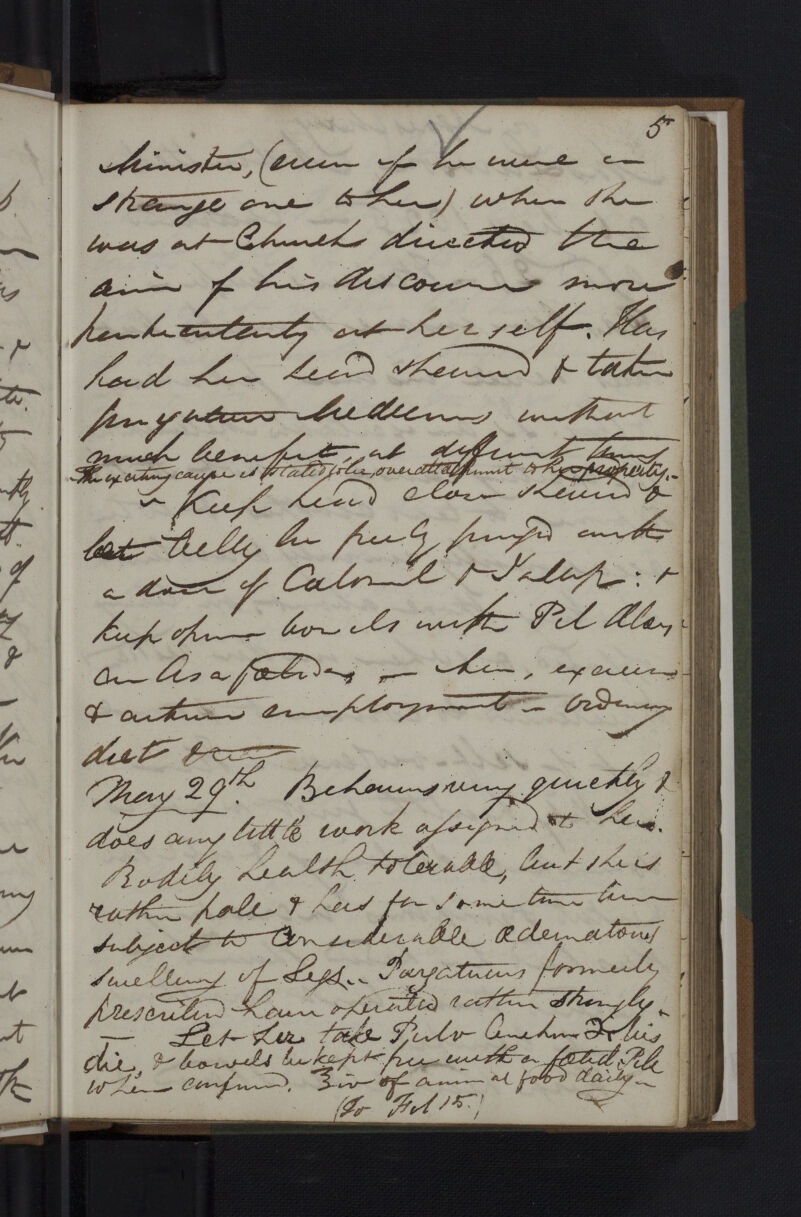 5
Minister, (even if he were a
strange one to her) when she
was at Church directed the
aim of his discourse more
particularly at herself. Has
had her head shaved & taken
purgative Medicines without
much benefit, at different times
The exciting cause is stated to be, over attachment to her property.
Keep head close shaved &
let belly be freely purged with
a dose of Calomel & Jalap: &
keep open bowels with Pil Aloes
cum Assafoetida, exercise
& active employment – Ordinary
diet
May 29th. Behaves very quietly &
does any little work assigned to her.
Bodily health tolerable, but she is
rather pale & has for some time been
subject to Considerable Oedematous
swelling of Legs. – Purgatives formerly
prescribed have operated rather strongly
– Let her take Pulv Cinchon bis
die, & bowels be kept free with a foetid Pill
when confined. ʒiv of animal food daily –
(To Fol 15.)